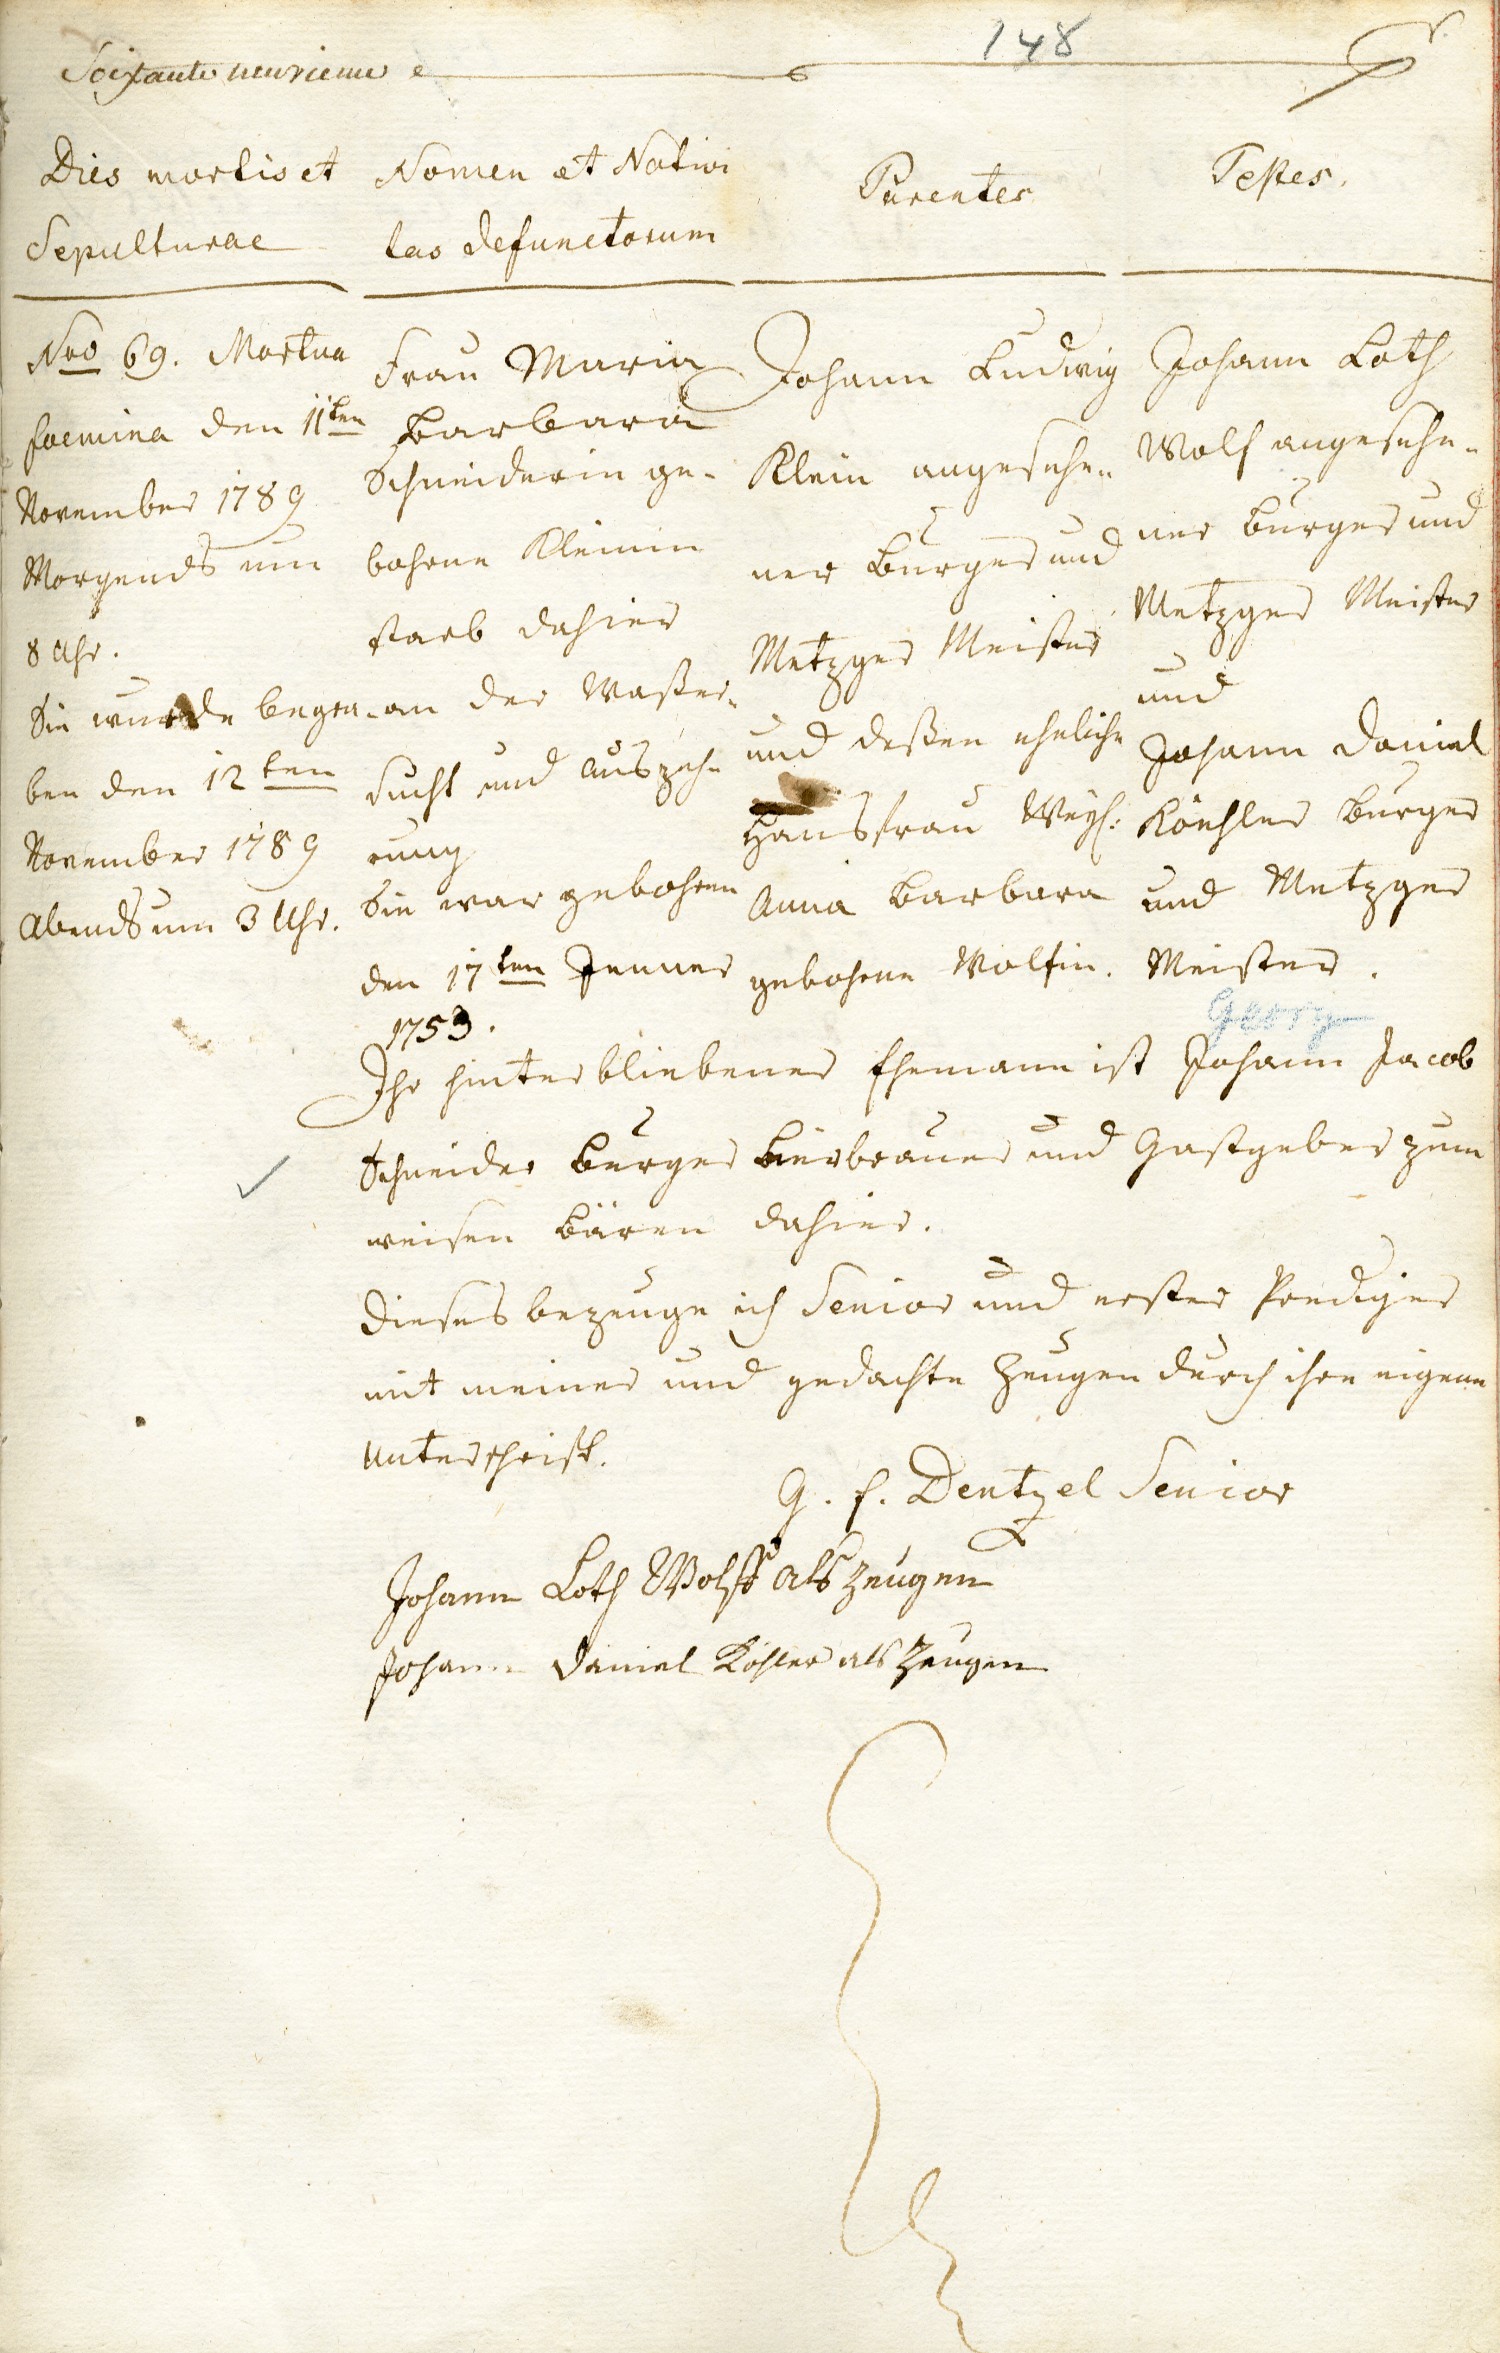 148
Soixante neuvieme
Dies mortis et
Sepulturae
Nomen et Nativi
tas defunctorum
Parentes
Testes.
Nro 69. Mortua
foemina den 11ten
November 1789
Morgends um
8 Uhr.
Sie wurde begra-
ben den 12ten
November 1789
Abends um 3 Uhr.
Frau Maria
Barbara
Schneiderin ge-
bohrne Kleinin
starb dahier
an der Waßer-
sucht und Auszeh-
rung
Sie war gebohren
den 17ten Jenner
1753.
Johann Ludwig
Klein angesehe-
ner Burger und
Metzger Meister
und deßen eheliche
Hausfrau Weyl:
Anna Barbara
gebohrne Wolfin.
Johann Loth
Wolf angesehe-
ner Burger und
Metzger Meister
und
Johann Daniel
Köehler Burger
und Metzger
Meister.
Georg
Ihr hinterbliebener Ehemann ist Johann Jacob
Schneider Burger Bierbrauer und Gastgeber zum
weisen Bären dahier.
Dieses bezeuge ich Senior und erster Prediger
mit meiner und gedachte Zeugen durch ihre eigene
Unterschrift.
G. F. Dentzel Senior
Johann Loth Wolff als Zeugen
Johann Daniel Köhler als Zeugen